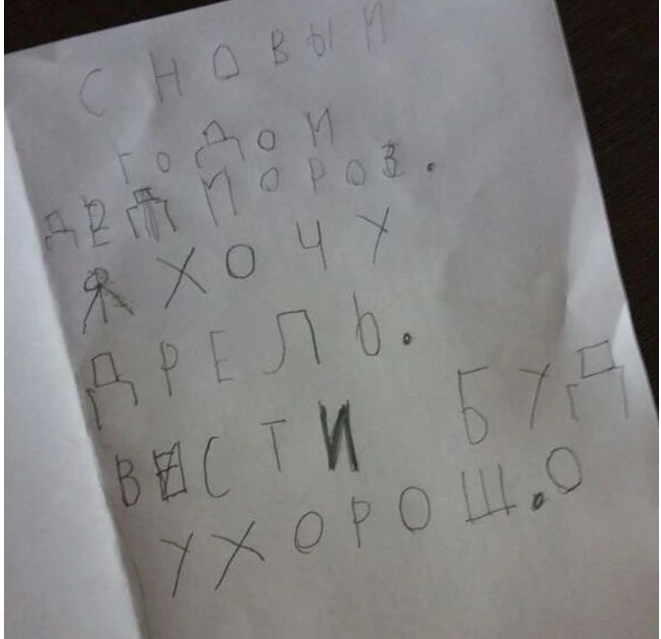 С НОВЫМ
ГОДОМ
ДЕД МОРОЗ.
Я ХОЧУ
ДРЕЛЬ.
ВЕСТИ БУД
УХОРОШ.О